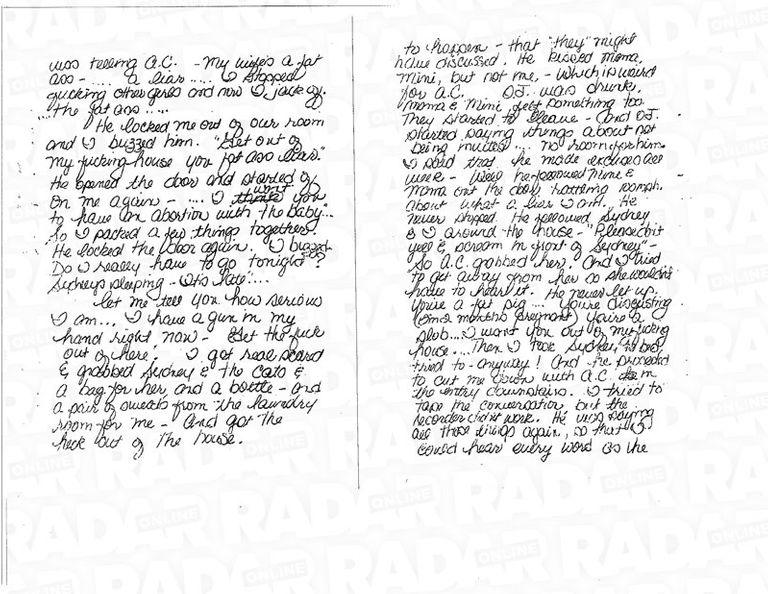 was telling A.C. - My wife's a fat
ass - .... a liar ..... I stopped
fucking other girls and now I jack off.
.... The fat ass .....
He locked me out of our room
and I buzzed him. "Get out of
my fucking house you fat ass liar."
He opened the door and started of
on me again - .... I want you
to have an abortion with the baby...
So I packed a few things together.
He locked the door again. I buzzed
Do I really have to go tonight?
Sydney's sleeping - it's late"....
let me tell you how serious
I am... I have a gun in my
hand right now - Get the fuck
out of here. I got real scared
& grabbed Sydney & the cats &
a bag for her and a bottle - and
a pair of sweats from the laundry
room for me - And got the
heck out of the house.
to happen - that "they" might
have discussed. He kissed Mama,
Mini, but not me, - which is weird
for A.C. O.J. was drunk.
Mama & Mini felt something too
They started to leave - and O.J.
started saying things about not
being invited .... no room for him.
I said that. he made excuses all
week - Well he followed Mini &
Mama out the door,
about what a liar I am. He
never stopped. He followed Sydney
& I around the house - "Please don't
yell & scream in front of Sydney" -
So A.C. grabbed her. And I tried
to get away from her so she wouldn't
have to hear it. He never let up.
You're a fat pig .... You're disgusting
(2 months pregnant) you're a
slob... I want you out of my fucking
house .... Then I took Sydney to bed
tried to - anyway! And he proceeded
to cut me down with A.C. in
the entry downstairs. I tried to
tape the conversation but the
recorder didn't work. He was saying
all these things again, so that I
could hear every word as he
RADAR
ONLINE